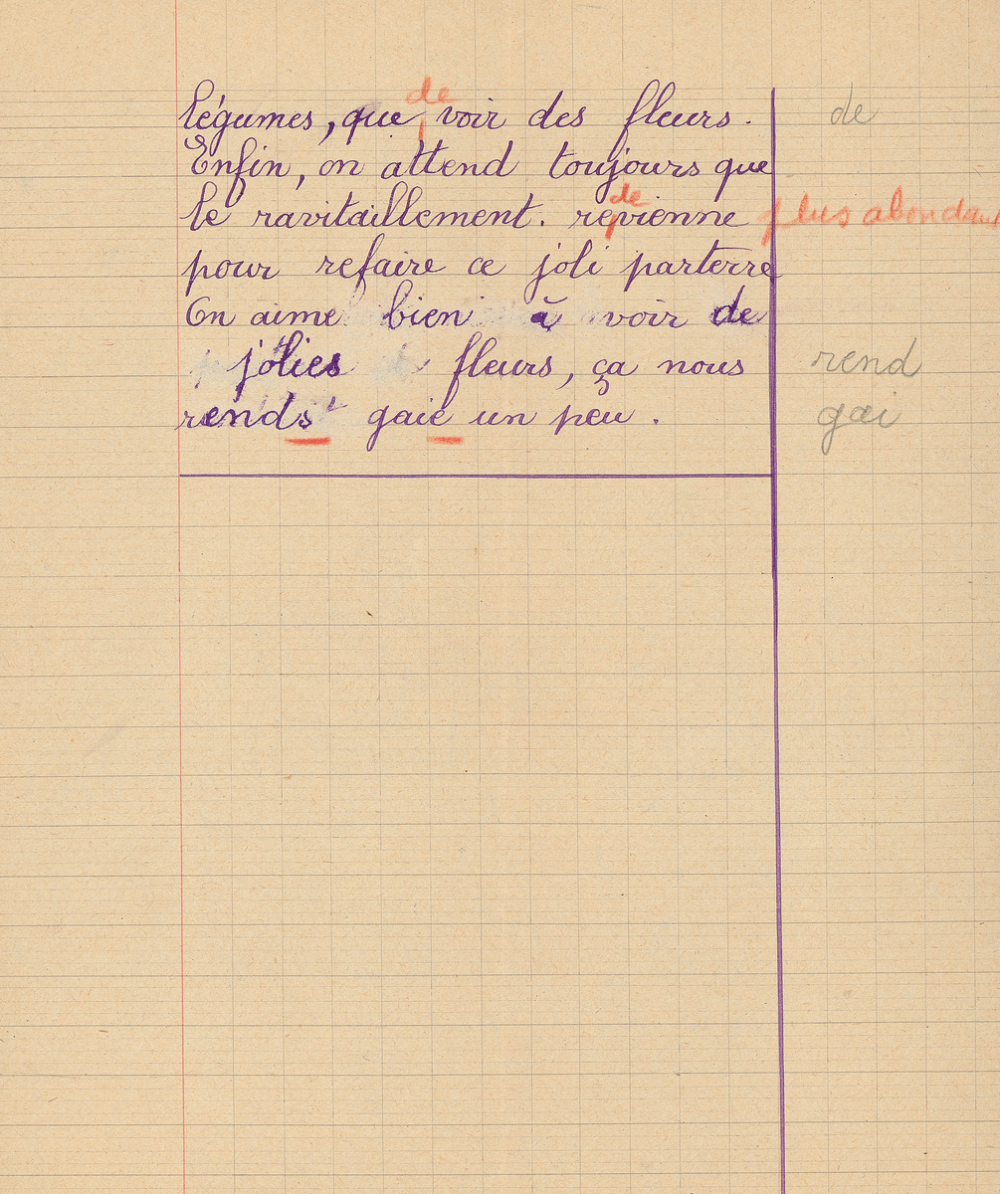 de
légumes, que voir des fleurs. de
Enfin, on attend toujours que
de
le ravitaillement. revienne plus abondant
pour refaire ce joli parterre
On aime bien à voir de
jolies fleurs, ça nous rend
rends gaie un peu. gai